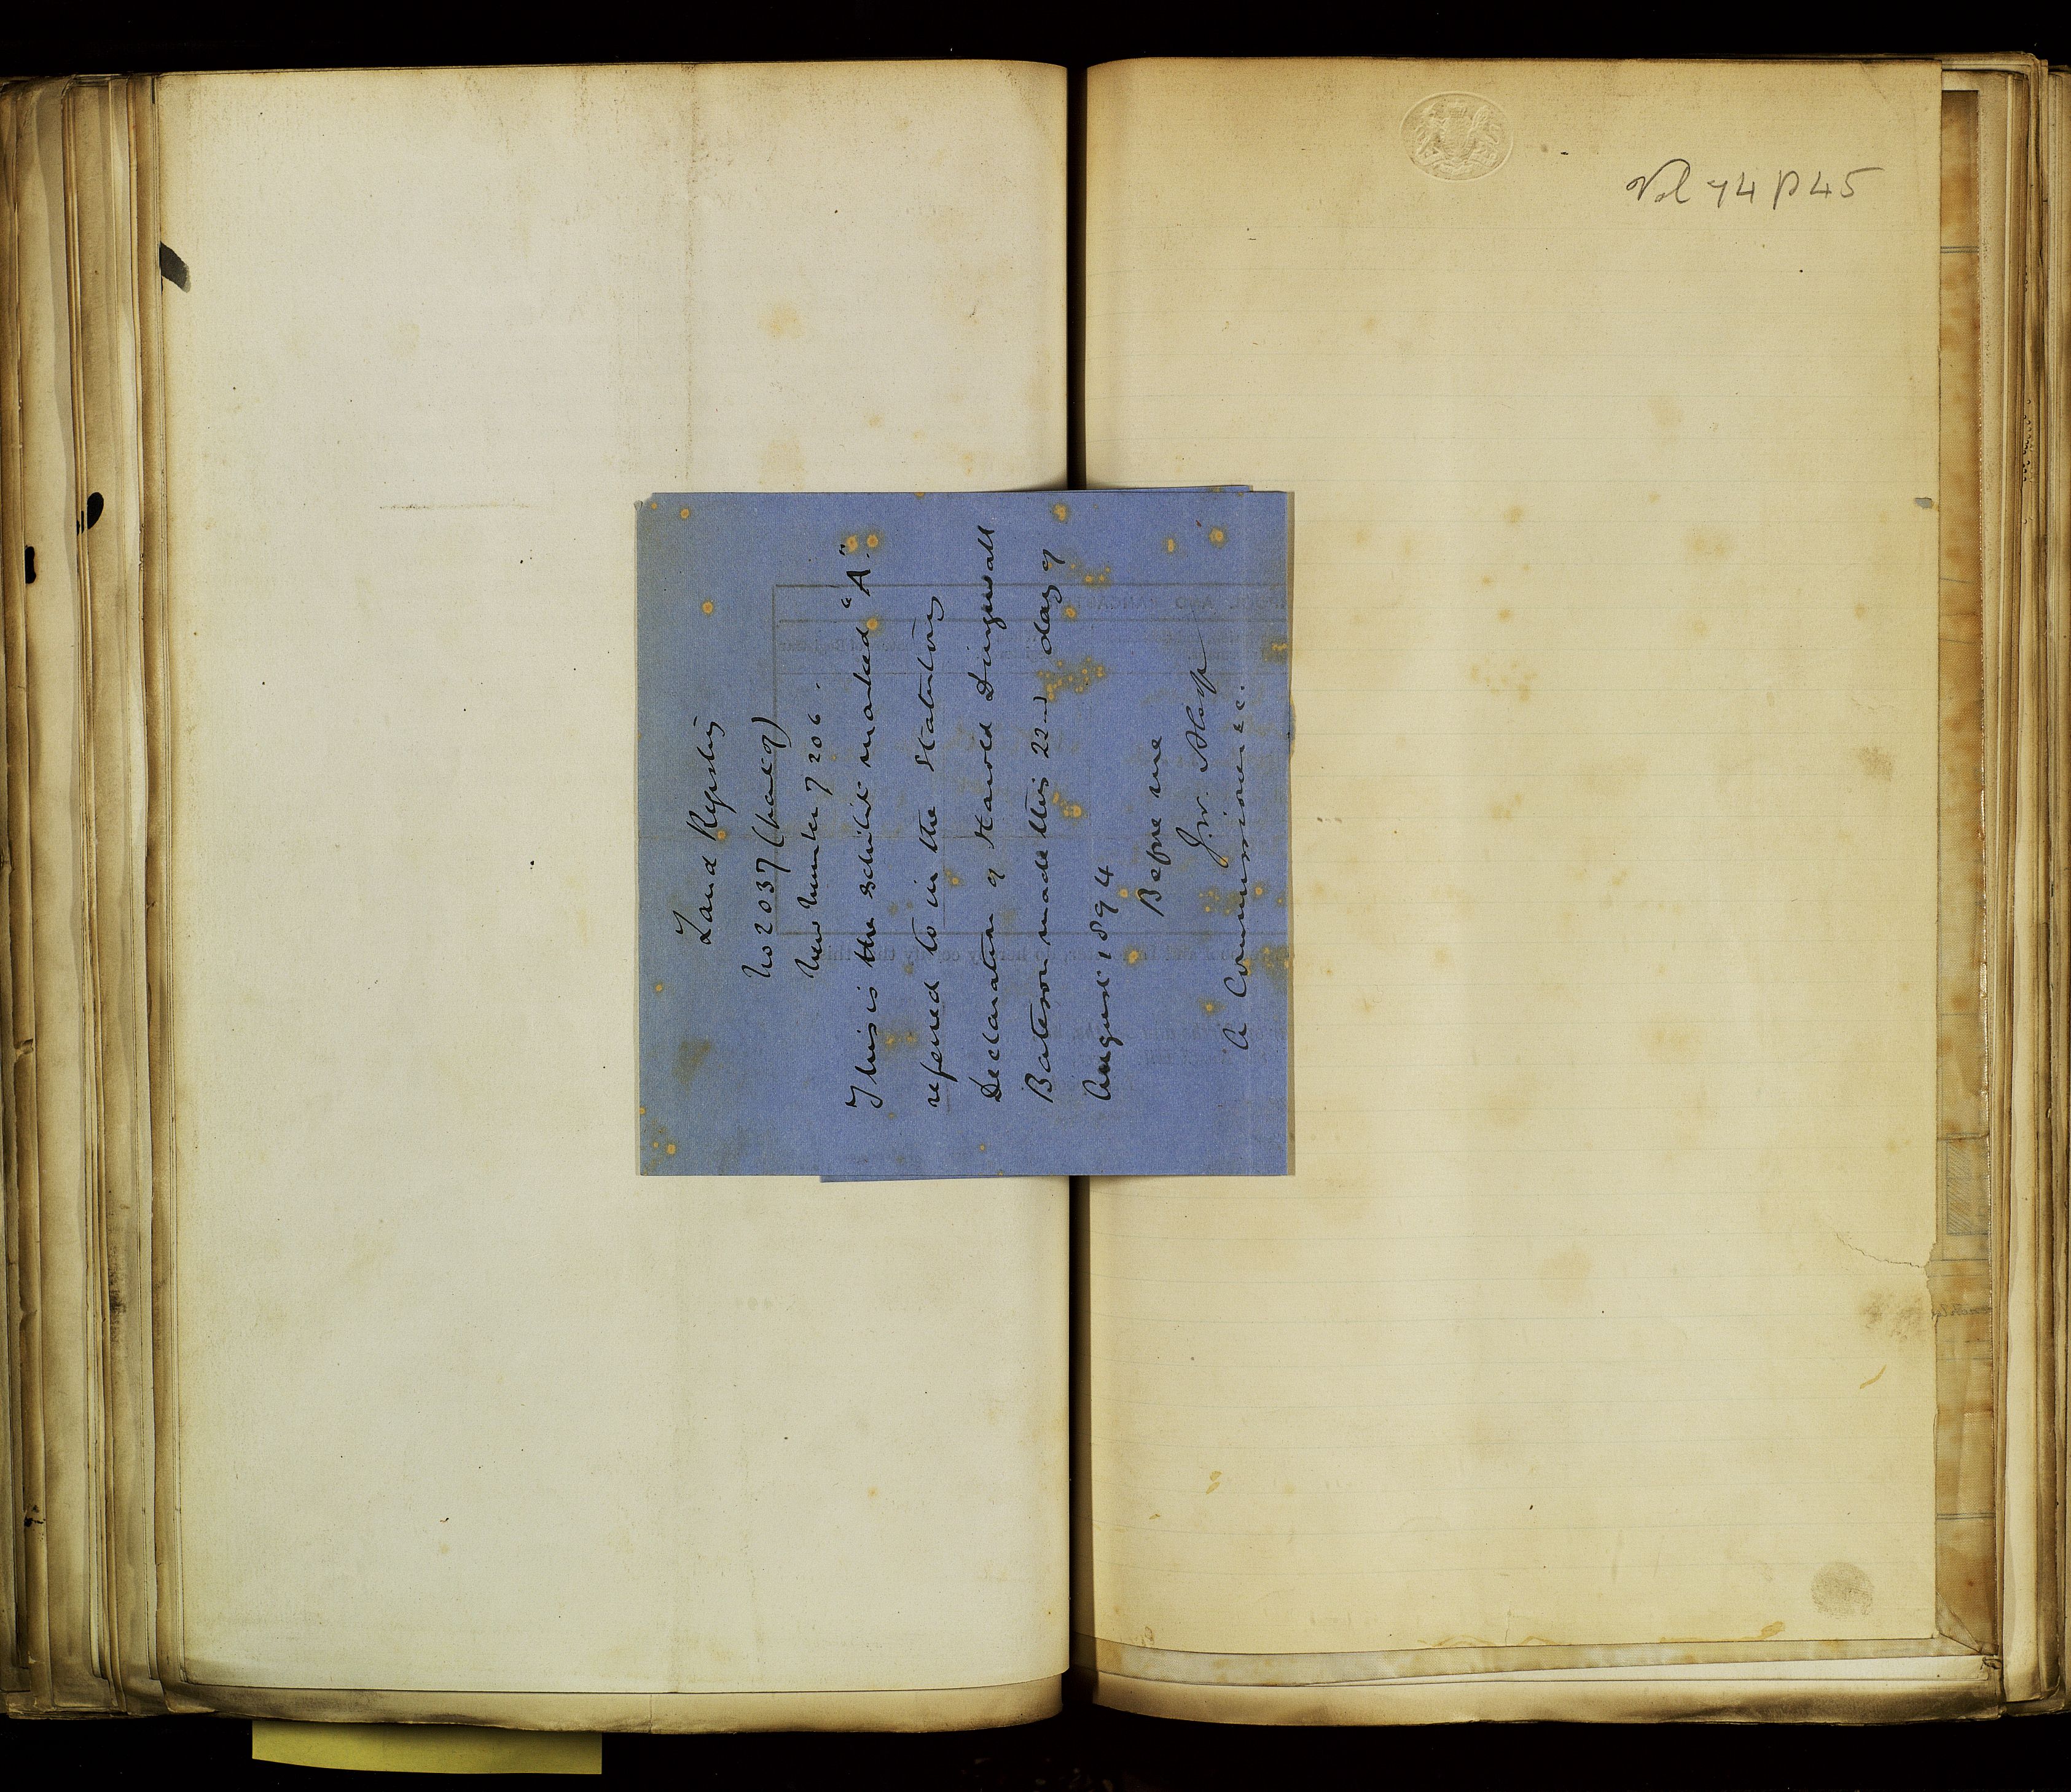 Vol 74 p 45
Land Registry
No 2037 (part of)
New Number 7206.
This is the exhibit marked "A"
referred to in the Statutory
Declaration of Harold Dingwall
Bateson made this 22nd day of
August 1894
Before me
J. W.
A Commissioner &c.